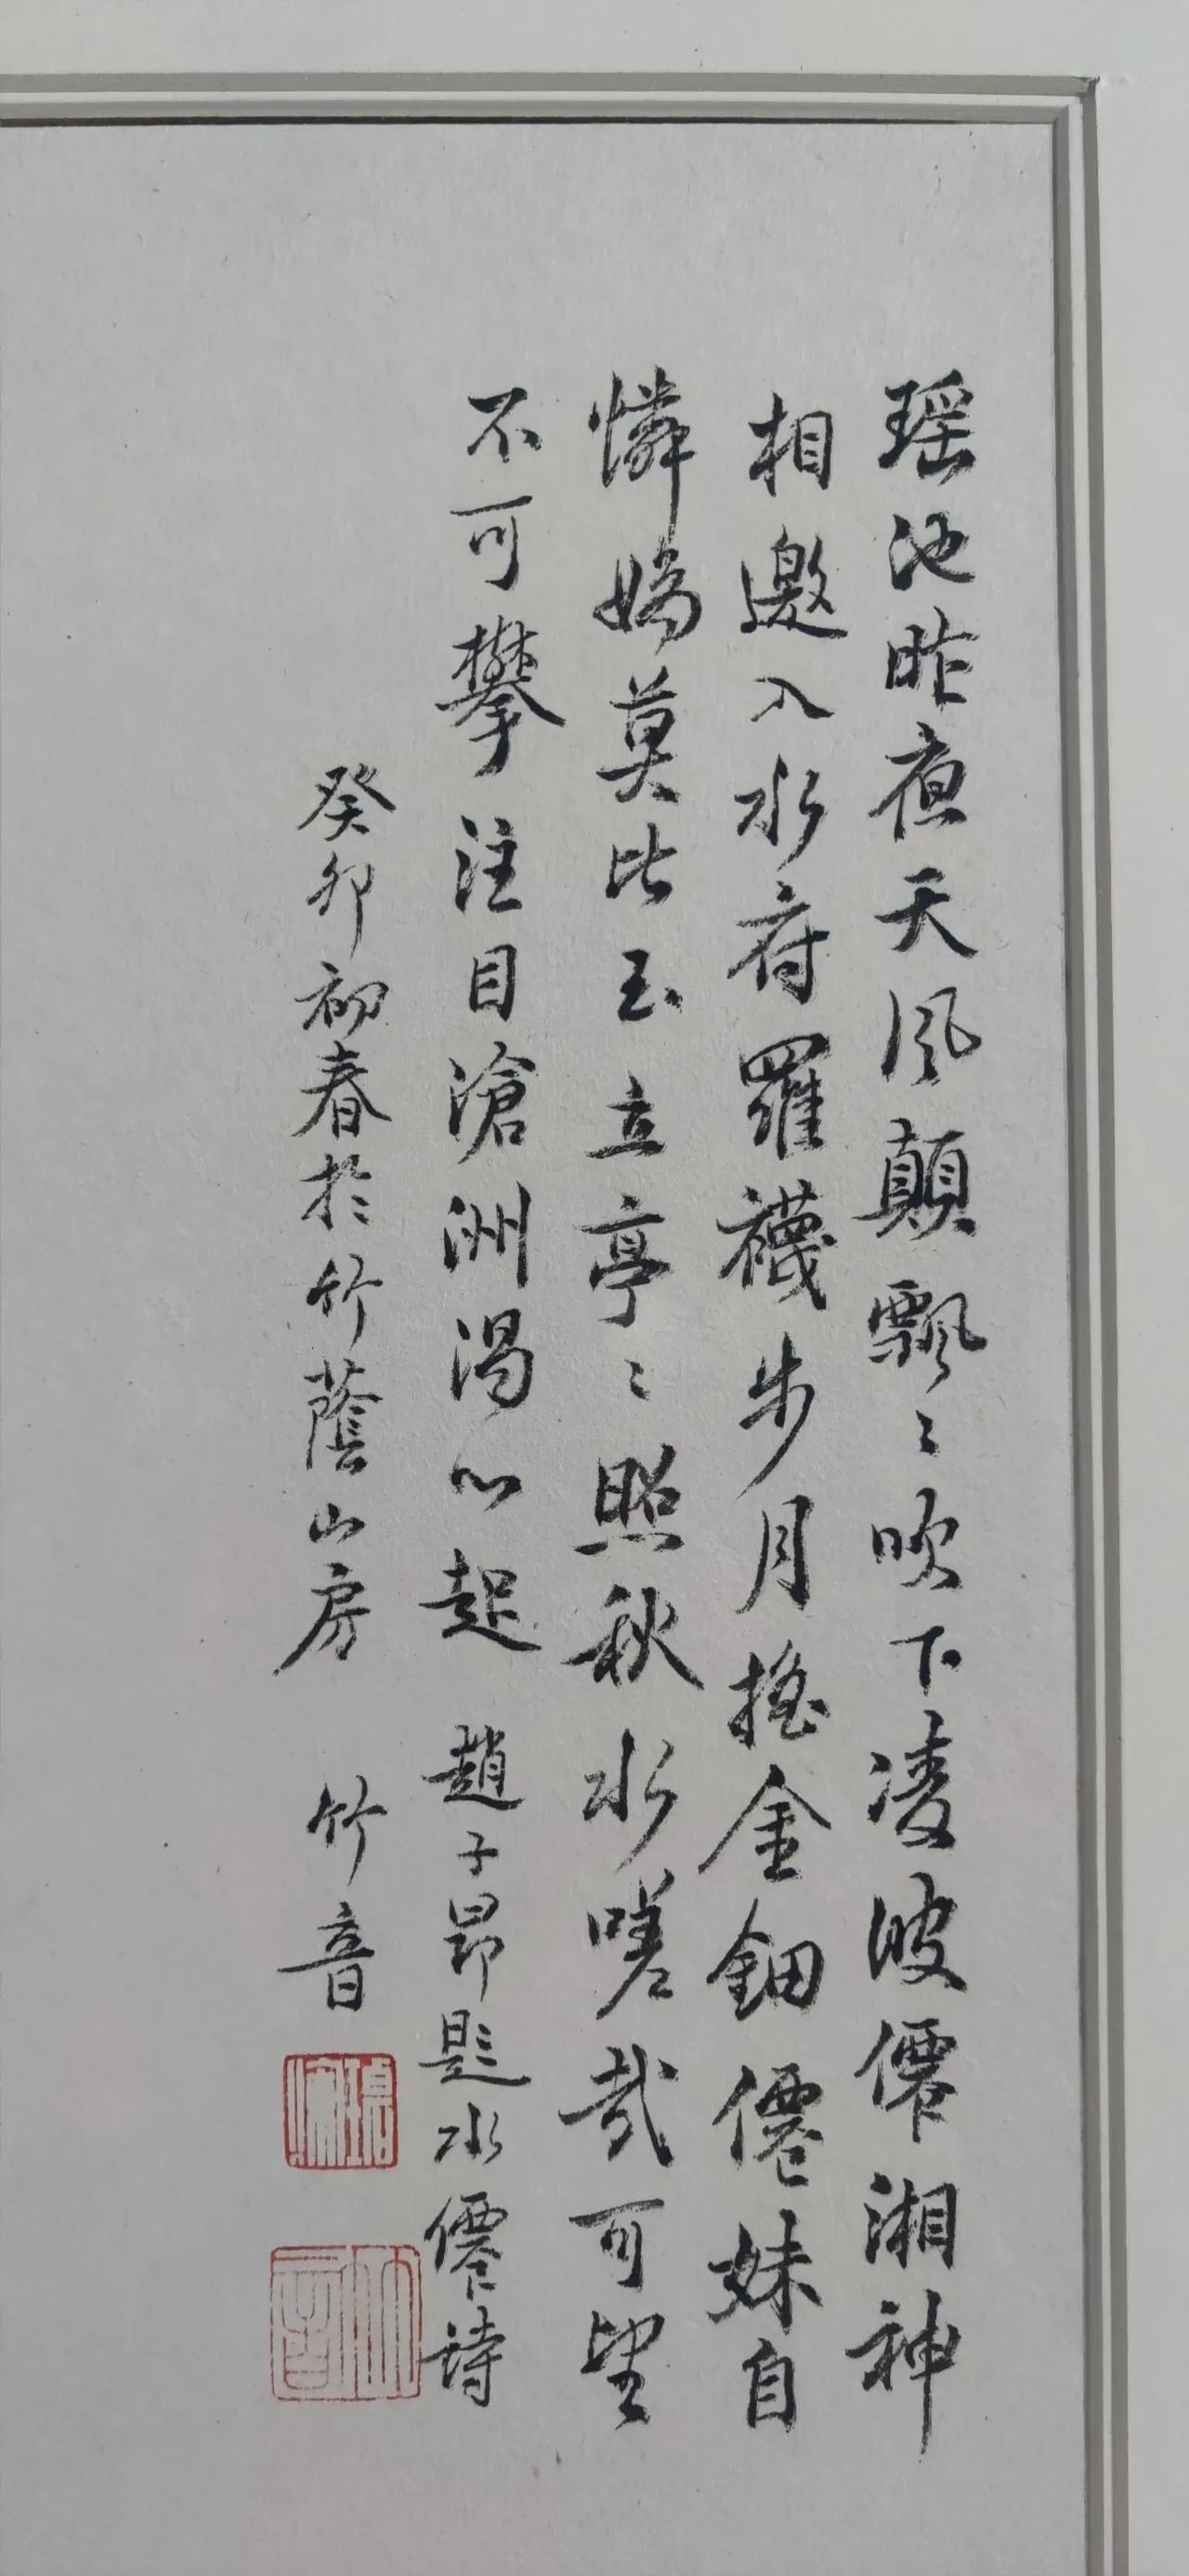 瑶池昨夜天风顛飄〻吹下凌波僊湘神
相邀入水府羅襪步月摇金鈿僊妹自
憐嬌莫比玉立亭〻照秋水嗟哉可望
不可攀注目滄洲渴心起 趙子昂題水僊詩
癸卯初春於竹蔭山房 竹音
竹音